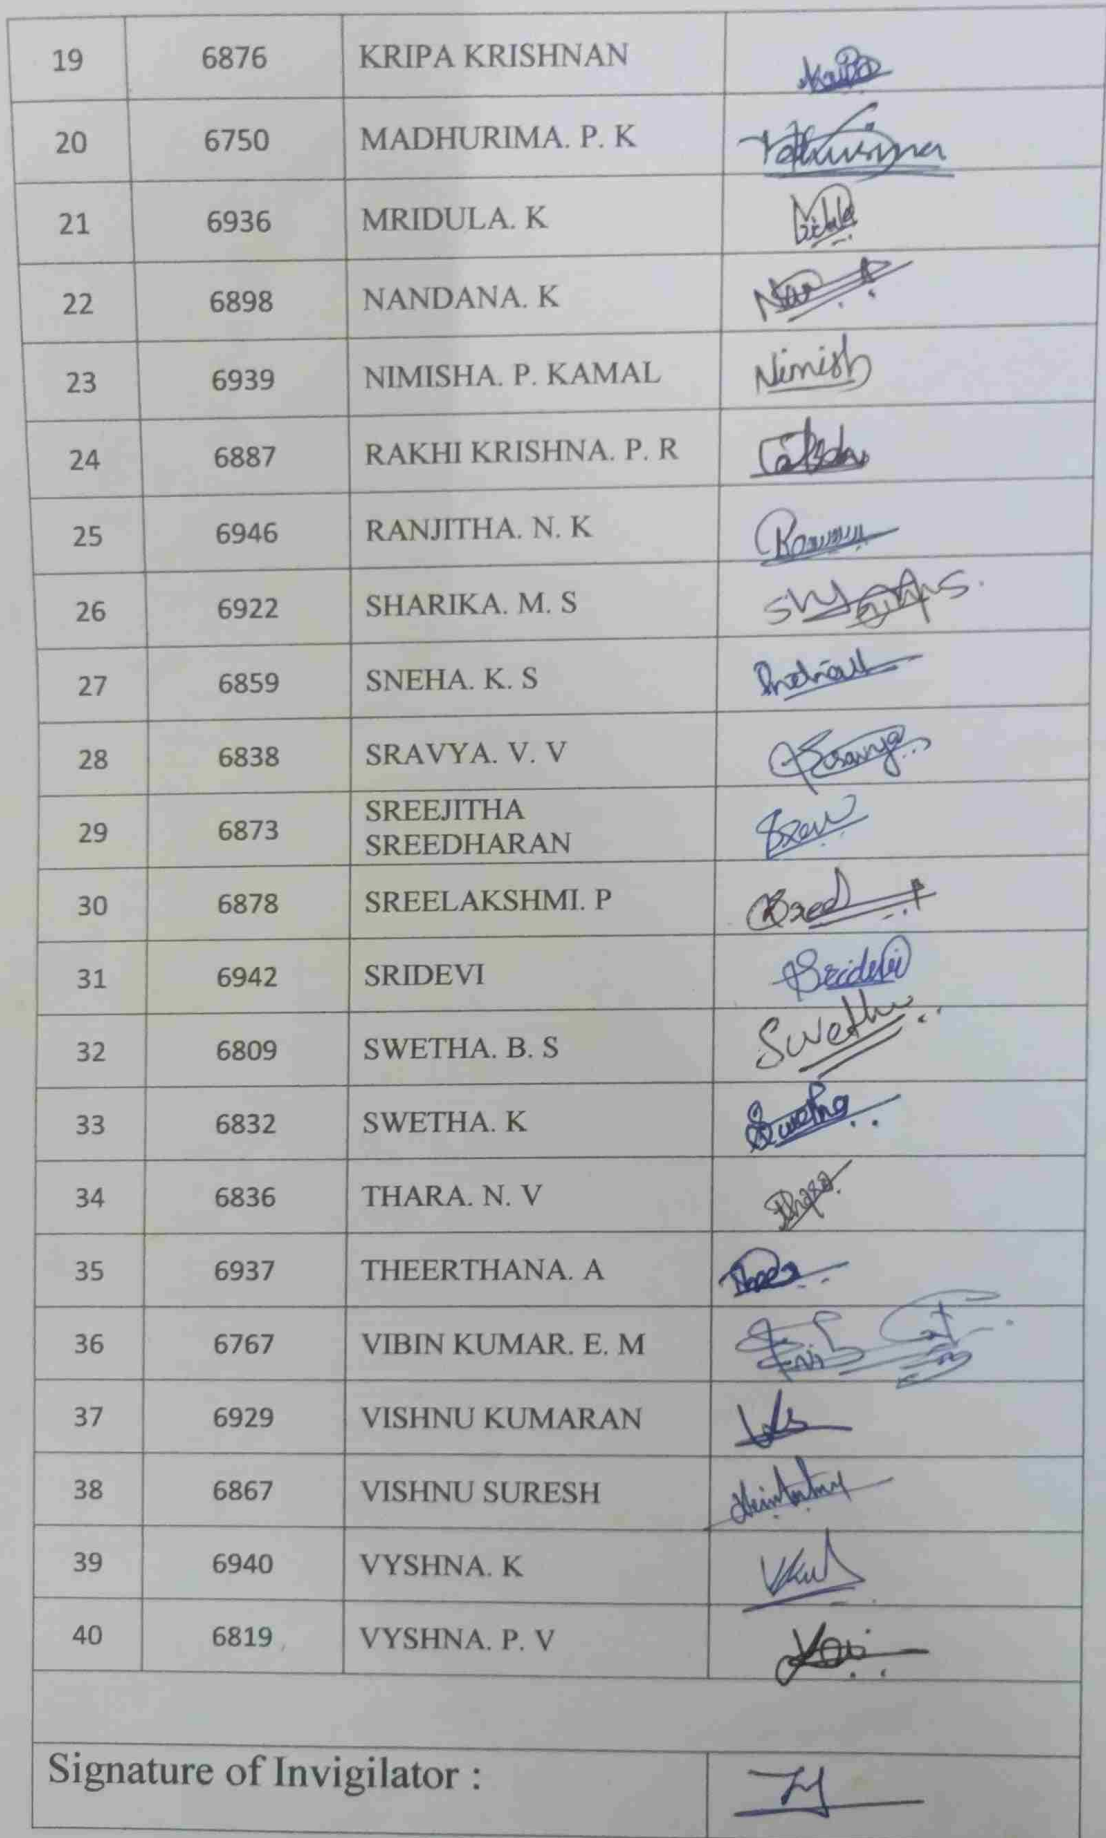 19 6876 KRIPA KRISHNAN Kripa
20 6750 MADHURIMA. P. K
21 6936 MRIDULA. K
22 6898 NANDANA. K Nan
23 6939 NIMISHA. P. KAMAL Nimish
24 6887 RAKHI KRISHNA. P. R
25 6946 RANJITHA. N. K
26 6922 SHARIKA. M. S
27 6859 SNEHA. K. S
28 6838 SRAVYA. V. V Sravya
29 6873 SREEJITHA
SREEDHARAN
30 6878 SREELAKSHMI. P Sreed
31 6942 SRIDEVI Sridevi
32 6809 SWETHA. B. S Swetha
33 6832 SWETHA. K Swetha
34 6836 THARA. N. V Thara
35 6937 THEERTHANA. A
36 6767 VIBIN KUMAR. E. M
37 6929 VISHNU KUMARAN
38 6867 VISHNU SURESH
39 6940 VYSHNA. K
40 6819 VYSHNA. P. V
Signature of Invigilator :